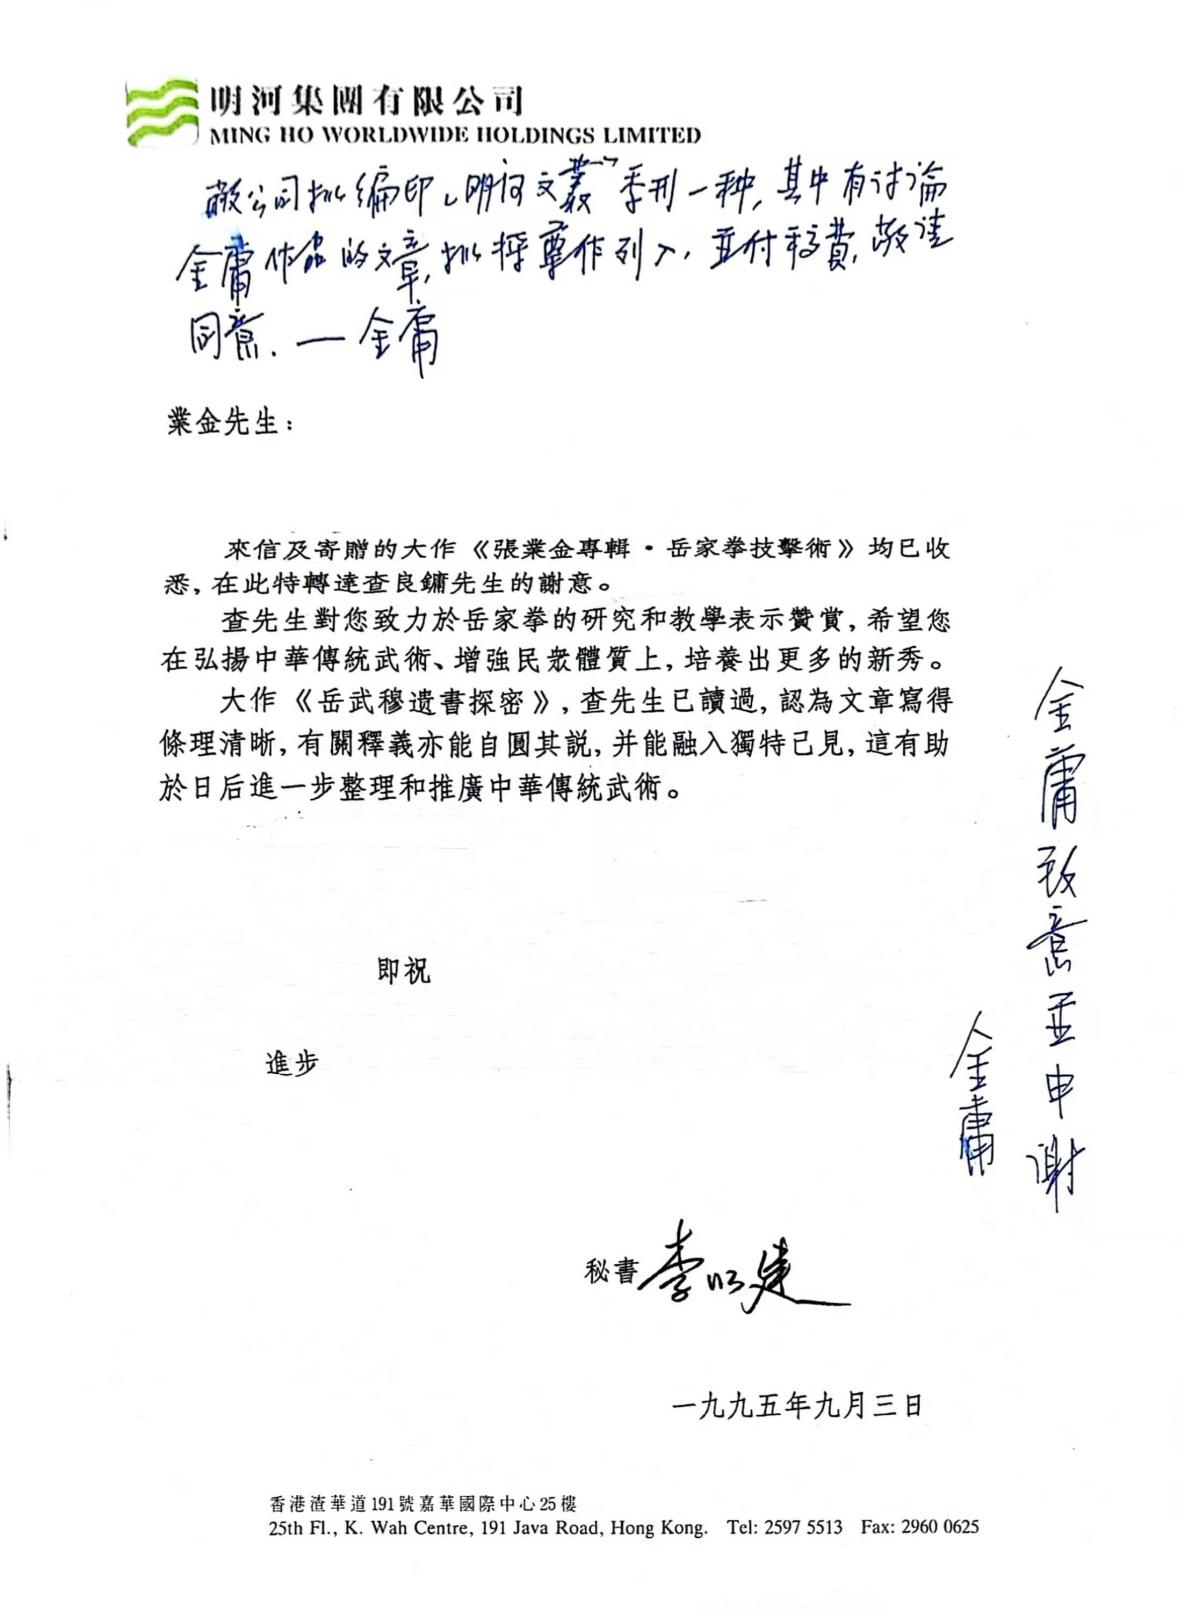 明河集團有限公司
MING HO WORLDWIDE HOLDINGS LIMITED
敝公司拟編印「明河文叢」季刊一种,其中有讨論
金庸作品的文章,拟择尊作列入,並付稿費,敬请
同意.—金庸
業金先生:
來信及寄贈的大作《張業金專輯·岳家拳技擊術》均已收
悉,在此特轉達查良鏞先生的謝意。
查先生對您致力於岳家拳的研究和教學表示贊賞,希望您
在弘揚中華傳統武術、增強民衆體質上,培養出更多的新秀。
大作《岳武穆遺書探密》,查先生已讀過,認為文章寫得
條理清晰,有關釋義亦能自圓其説,并能融入獨特己見,這有助
於日后進一步整理和推廣中華傳統武術。
金庸致意並申谢
金庸
即祝
進步
秘書 李以建
一九九五年九月三日
香港渣華道191號嘉華國際中心25樓
25th Fl., K. Wah Centre, 191 Java Road, Hong Kong. Tel: 2597 5513 Fax: 2960 0625